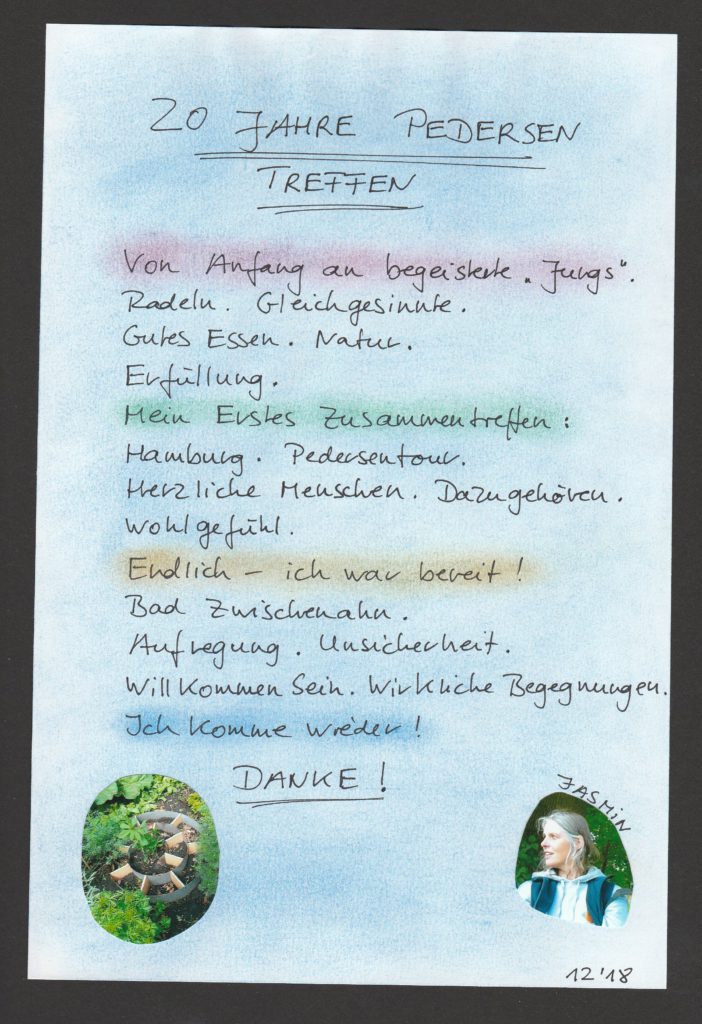 20 JAHRE PEDERSEN
TREFFEN
Von Anfang an begeisterte „Jungs“.
Radeln. Gleichgesinnte.
Gutes Essen. Natur.
Erfüllung.
Mein Erstes Zusammentreffen:
Hamburg. Pedersentour.
Herzliche Menschen. Dazugehören.
Wohlgefühl.
Endlich – ich war bereit!
Bad Zwischenahn.
Aufregung. Unsicherheit.
Willkommen Sein. Wirkliche Begegnungen.
Ich komme wieder!
DANKE!
JASMIN
12'18